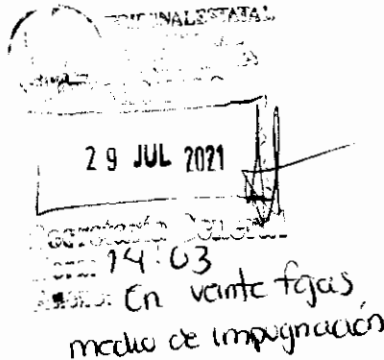 TRIBUNAL ESTATAL
29 JUL 2021
Secretaría General
14:03
En veinte fojas
medio de impugnación